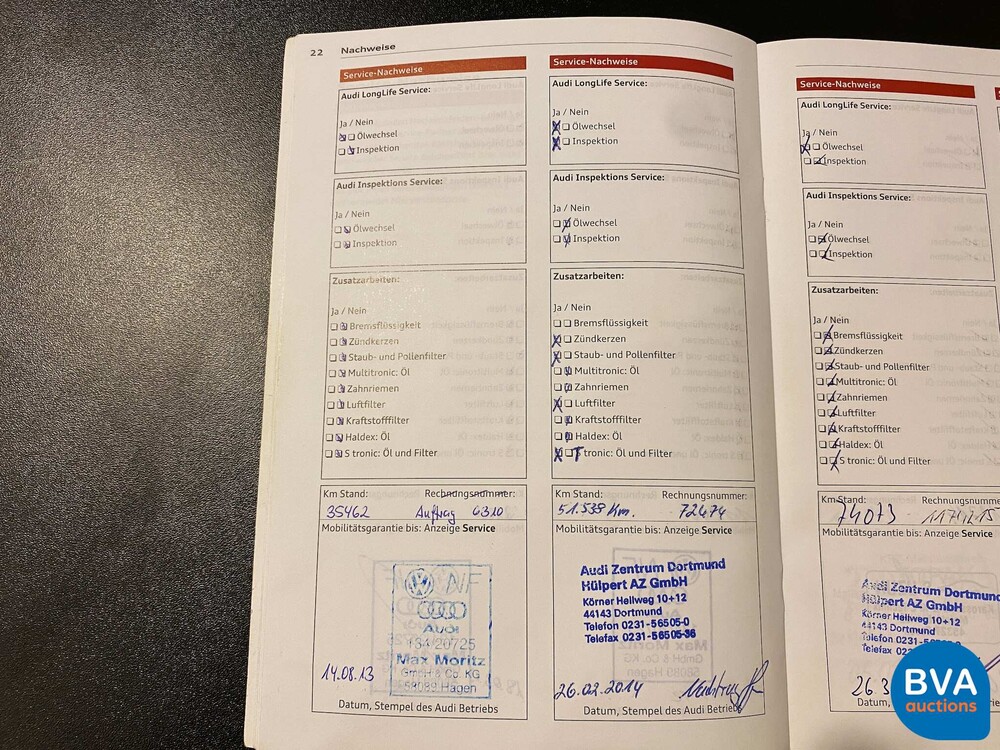 22 Nachweise
Service-Nachweise
Audi LongLife Service:
Ja / Nein
Ölwechsel
Inspektion
Audi Inspektions Service:
Ja / Nein
Ölwechsel
Inspektion
Zusatzarbeiten:
Ja / Nein
Bremsflüssigkeit
Zündkerzen
Staub- und Pollenfilter
Multitronic: Öl
Zahnriemen
Luftfilter
Kraftstofffilter
Haldex: Öl
S tronic: Öl und Filter
Km Stand: Rechnungsnummer:
35462 Auftrag 6310
Mobilitätsgarantie bis: Anzeige Service
NF
Audi
184/20725
Max Moritz
GmbH & Co. KG
58089 Hagen
14.08.13
Datum, Stempel des Audi Betriebs
Service-Nachweise
Audi LongLife Service:
Ja / Nein
Ölwechsel
Inspektion
Audi Inspektions Service:
Ja / Nein
Ölwechsel
Inspektion
Zusatzarbeiten:
Ja / Nein
Bremsflüssigkeit
Zündkerzen
Staub- und Pollenfilter
Multitronic: Öl
Zahnriemen
Luftfilter
Kraftstofffilter
Haldex: Öl
S tronic: Öl und Filter
Km Stand: Rechnungsnummer:
51.538 Km. 72474
Mobilitätsgarantie bis: Anzeige Service
Audi Zentrum Dortmund
Hülpert AZ GmbH
Körner Hellweg 10+12
44143 Dortmund
Telefon 0231-56505-0
Telefax 0231-56505-36
26.02.2014
Datum, Stempel des Audi Betriebs
Service-Nachweise
Audi LongLife Service:
Ja / Nein
Ölwechsel
Inspektion
Audi Inspektions Service:
Ja / Nein
Ölwechsel
Inspektion
Zusatzarbeiten:
Ja / Nein
Bremsflüssigkeit
Zündkerzen
Staub- und Pollenfilter
Multitronic: Öl
Zahnriemen
Luftfilter
Kraftstofffilter
Haldex: Öl
S tronic: Öl und Filter
Km Stand: Rechnungsnummer:
74073
Mobilitätsgarantie bis: Anzeige Service
Audi Zentrum Dortmund
Hülpert AZ GmbH
Körner Hellweg 10+12
44143 Dortmund
Telefon 0231-
Telefax
26 3
Datum,
BVA
auctions